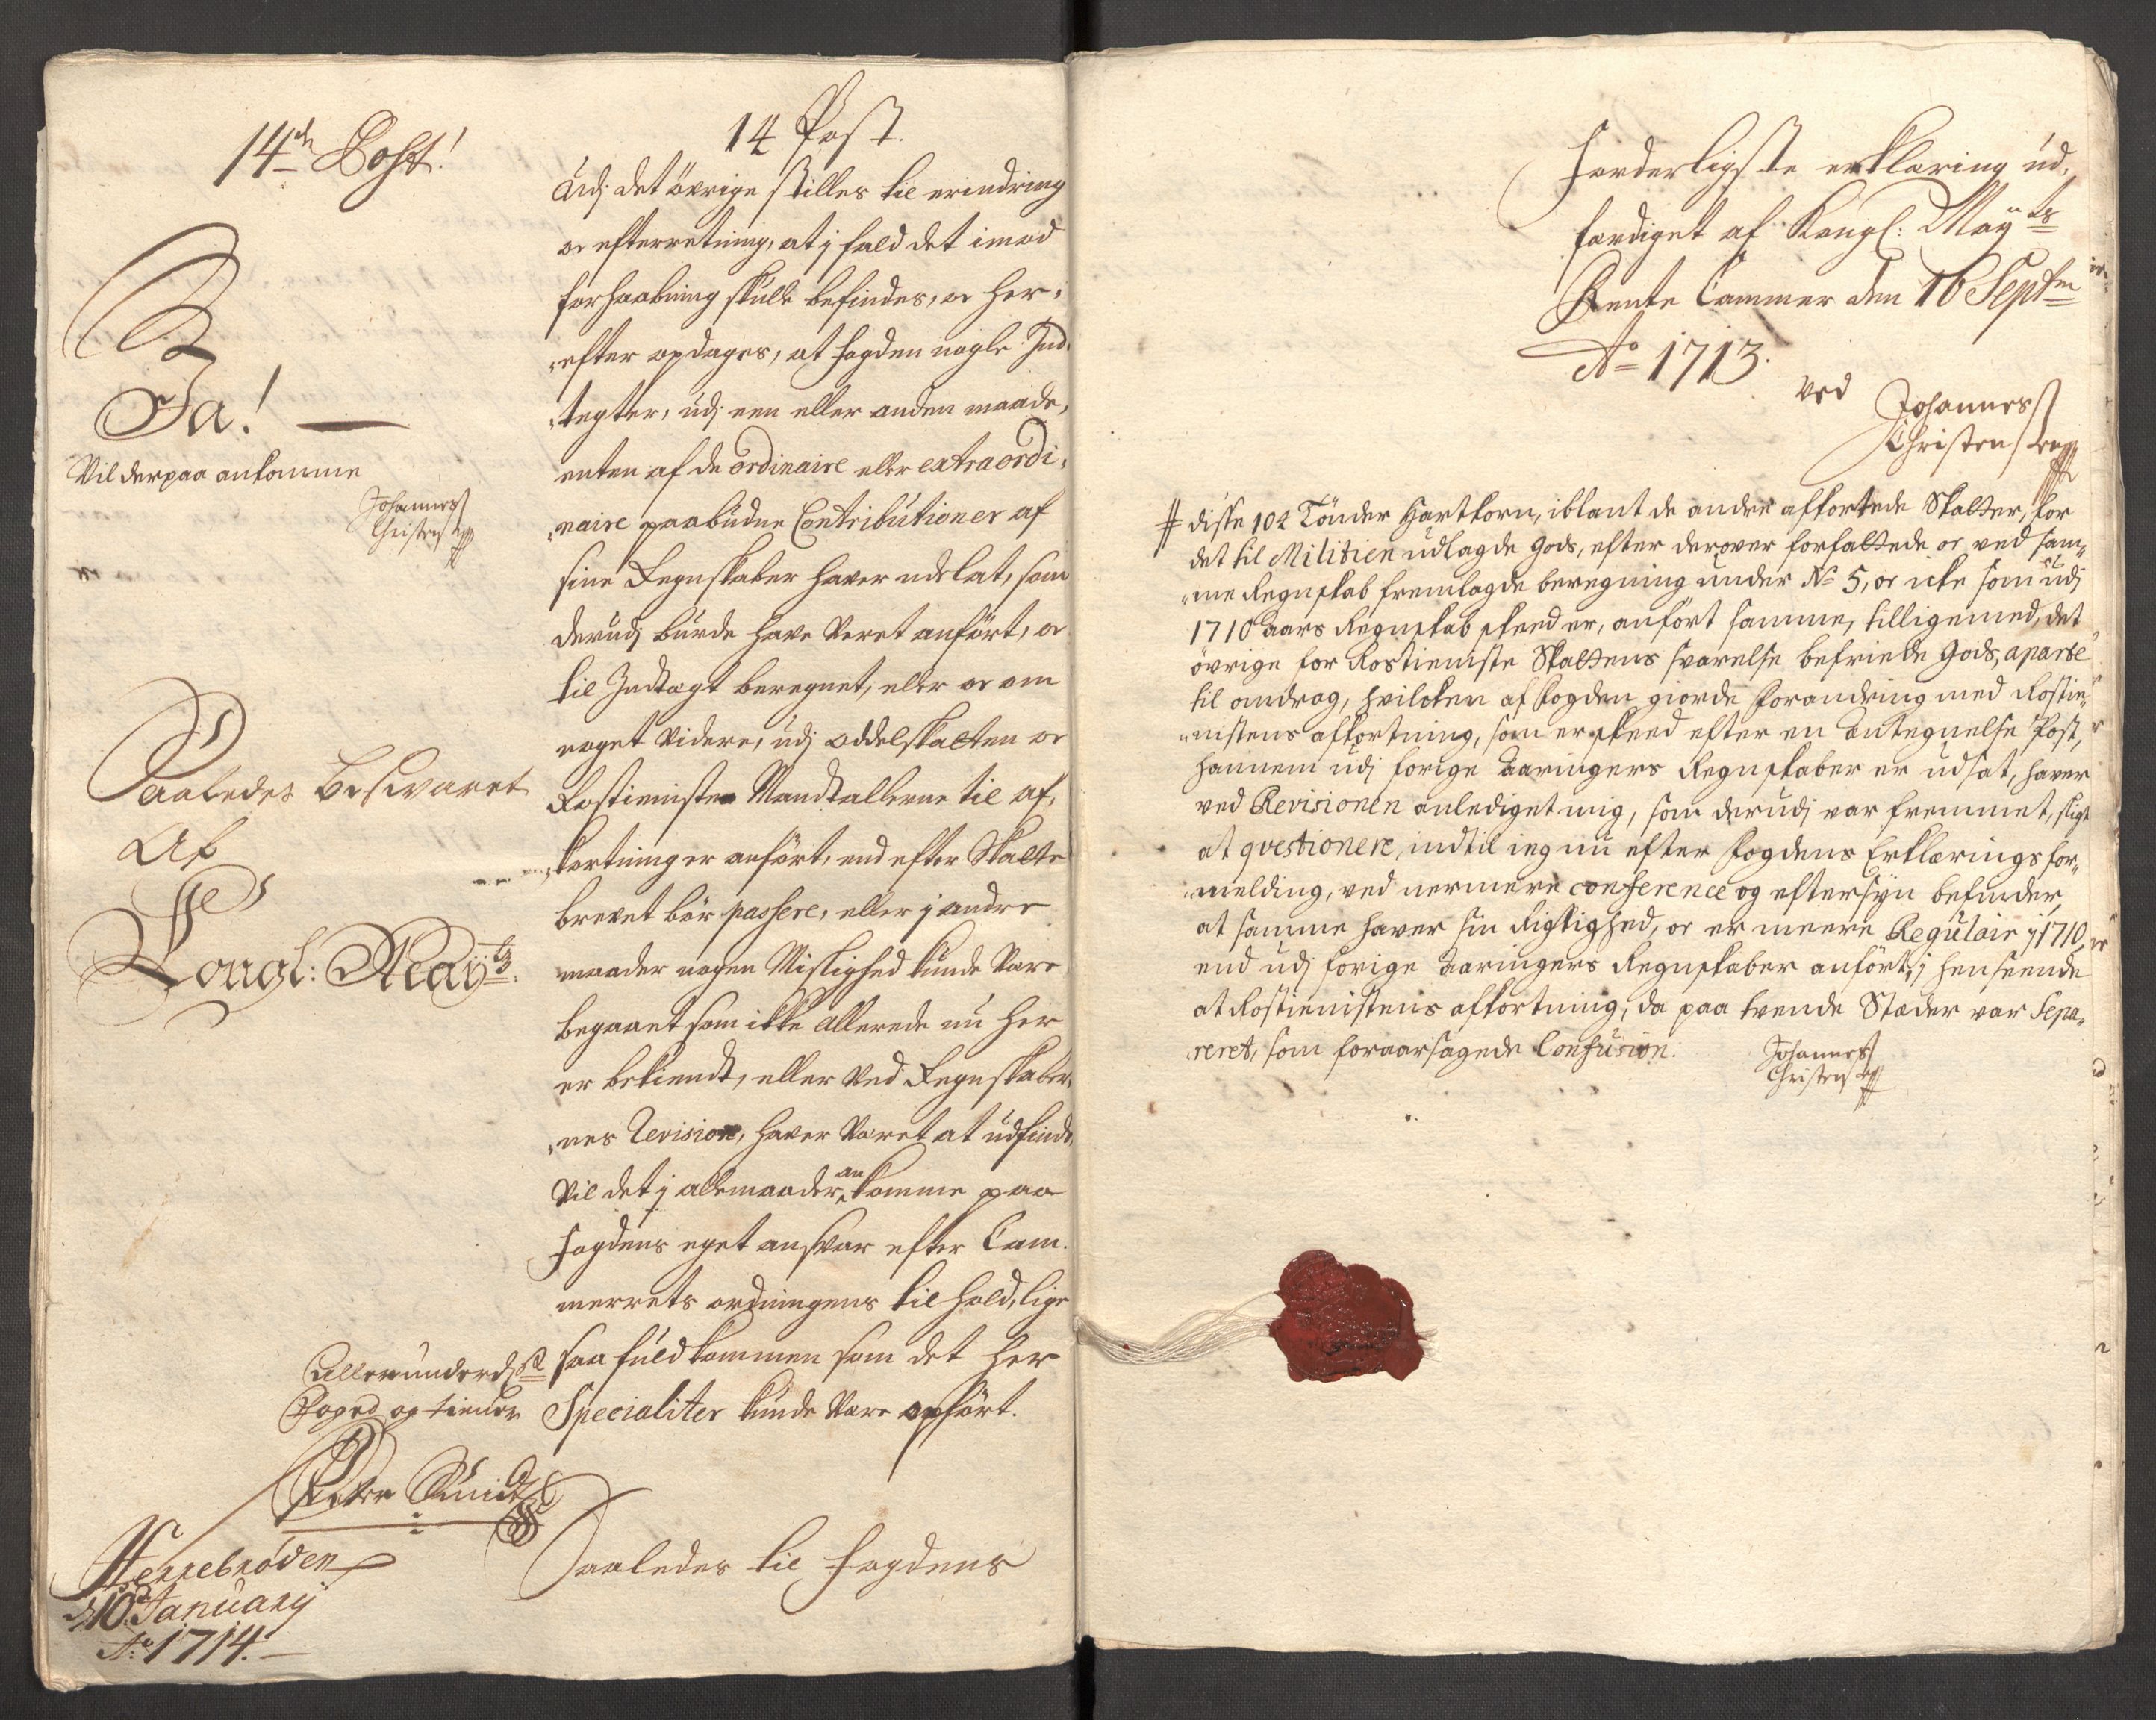 14de Post!
Ja!
Vil derpaa ankomme
Johannes
Christens
Saaledes besvaret
Af
Kongl: Mayts
Allerunderds
Foged og tiener
Peter
Herrebrøden
d: 10 January
Ao 1714.
14 Post.
Udj det øvrige stilles til erindring
og efterretning, at j fald det imod
forhaabning skulle befindes, og her-
efter opdages, at fogden nogle Ind-
tegter, udj een eller anden maade,
enten af de ordinaire eller extraordi-
naire paabudne Contributioner af
sine Regnskaber hafver udelat, som
derudj burde have veret anført, og
til Indtægt beregnet, eller og om
noget videre, udj oddelskatten og
Rostienisten Mandtallerne til af-
kortning er anført, end efter Skatte
brevet bør passere, eller j andre
maader nogen Mislighed kunde være
begaaet som ikke allerede nu her
er bekiendt, eller ved Regnskaber-
nes Revision, hafver været at udfinde
Vil det j alle maader ankomme paa
fogdens eget ansvar efter Cam-
merrets ordningens til hold, lige
saa fuldkommen som det her
Specialiter kunde være opført.
Saaledes til fogdens
forderligste erklæring ud-
færdiget af Kongl: Mayts
Rente Cammer den 16 Septem
Ao 1713.
ved Johannes
Christensen
# disse 102 Tønder Hartkorn, iblant de andre afkortede Skatter, for
det til Militien udlagde Gods, efter derover forfattede og ved sam-
me Regnskab fremlagde beregning under No 5, og icke som udj
1710 Aars Regnskab skeed er, anført samme, tilligemed, det
øvrige for Rostieniste Skattens svarelse befriede Gods, aparte
til andrag, hvilcken af fogden giorde forandring med Rostie-
nistens afkortning, som er skeed efter en Antegnelse Post,
hannem udj forige Aaringers Regnskaber er udsat, hafver
ved Revisionen anlediget mig, som derudj var fremmet, sligt
at qvestionere, indtil ieg nu efter fogdens Erklærings for-
melding, ved nermere conference og eftersyn befinder,
at samme hafver sin Rigtighed, og er meere Regulair j 1710,
end udj forige Aaringers Regnskaber anført, j henseende
at Rostienistens afkortning, da paa tvende Stæder var Sepa-
reret, som foraarsagede Confusion.
Johannes
Christens